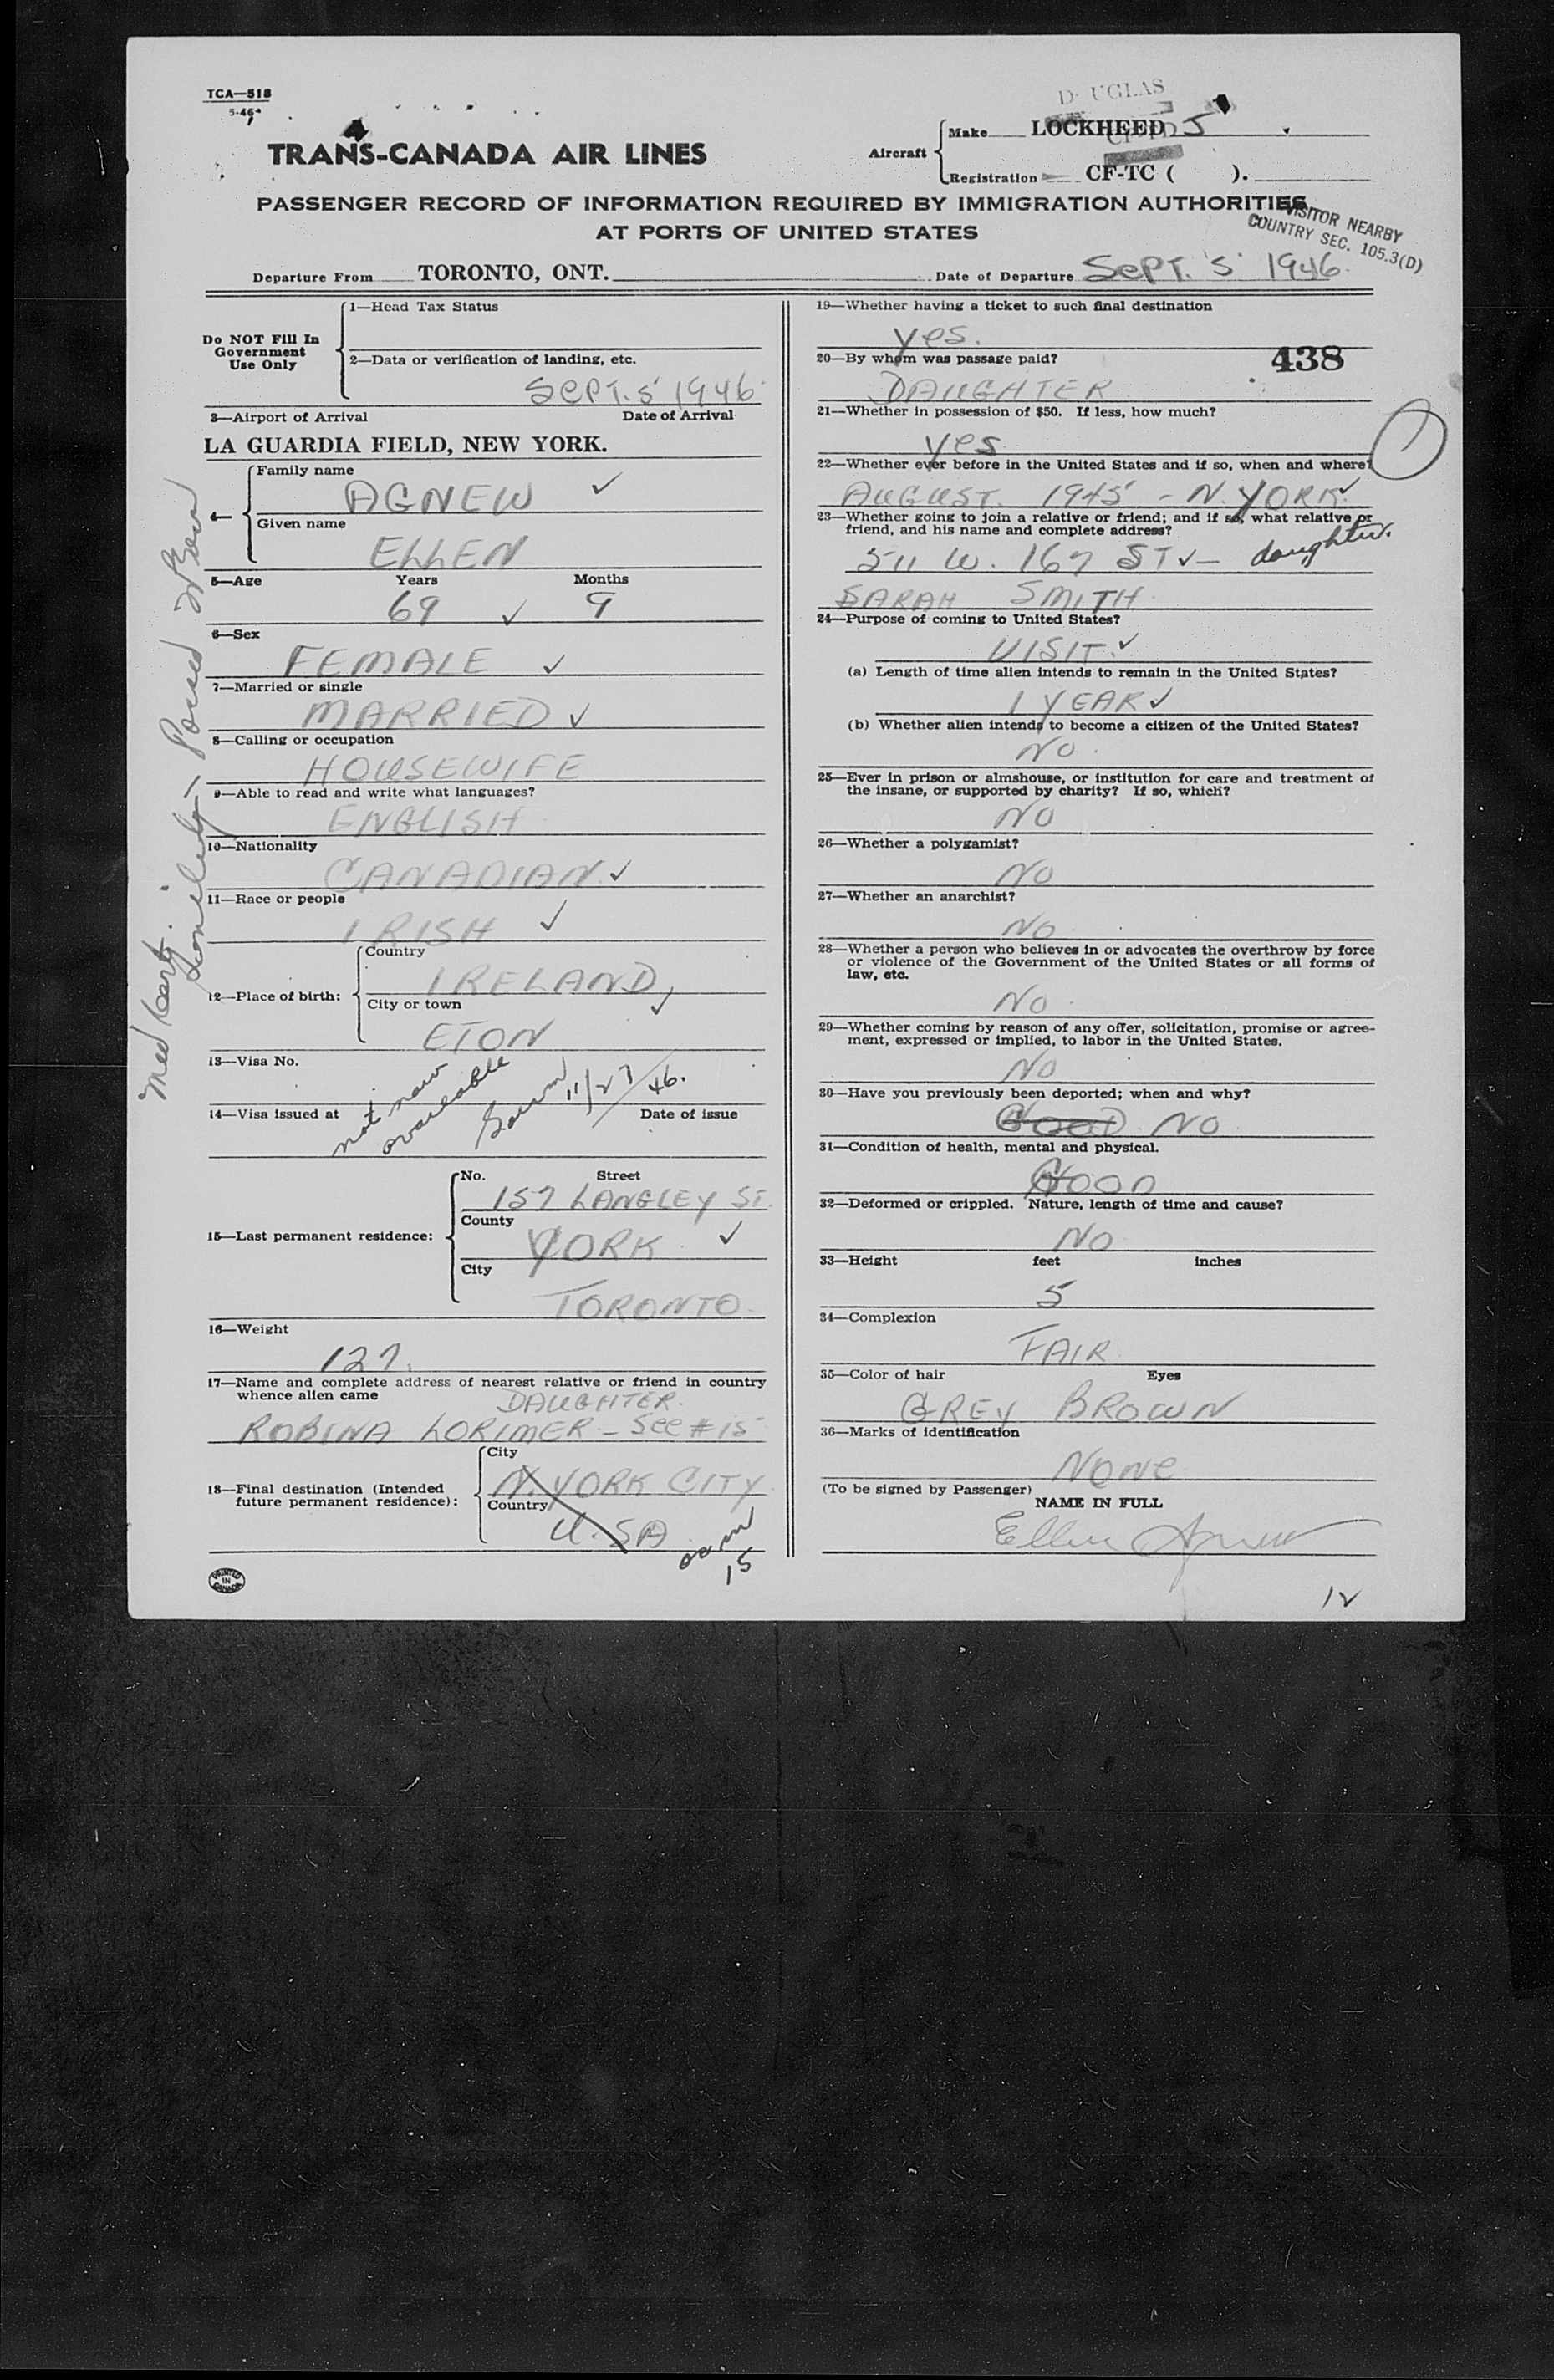 TCA—518
5-46
DOUGLAS
TRANS-CANADA AIR LINES
Aircraft
Make LOCKHEED 5
Registration CF-TC ( ).
PASSENGER RECORD OF INFORMATION REQUIRED BY IMMIGRATION AUTHORITIES
AT PORTS OF UNITED STATES
VISITOR NEARBY
COUNTRY SEC. 105.3(D)
Departure From TORONTO, ONT. Date of Departure SEPT. 5 1946.
Do NOT Fill In
Government
Use Only
1—Head Tax Status
2—Data or verification of landing, etc.
SEPT. 5 1946
3—Airport of Arrival Date of Arrival
LA GUARDIA FIELD, NEW YORK.
Family name
AGNEW ✓
Given name
ELLEN
5—Age Years Months
69 ✓ 9
6—Sex
FEMALE ✓
7—Married or single
MARRIED ✓
8—Calling or occupation
HOUSEWIFE
9—Able to read and write what languages?
ENGLISH
10—Nationality
CANADIAN ✓
11—Race or people
IRISH ✓
12—Place of birth:
Country
IRELAND
City or town ✓
ETON
13—Visa No.
not now
available
11/27/46.
14—Visa issued at Date of issue
15—Last permanent residence:
No. Street
157 LANGLEY ST.
County
YORK ✓
City
TORONTO
16—Weight
127.
17—Name and complete address of nearest relative or friend in country
whence alien came
DAUGHTER.
ROBINA LORIMER – See #15
18—Final destination (Intended
future permanent residence):
City
N. YORK CITY
Country
U.SA
15
PRINTED
IN
CANADA
Med
19—Whether having a ticket to such final destination
yes.
20—By whom was passage paid?
438
DAUGHTER
21—Whether in possession of $50. If less, how much?
yes
1
22—Whether ever before in the United States and if so, when and where?
AUGUST. 1945 – N. YORK ✓
23—Whether going to join a relative or friend; and if so, what relative or
friend, and his name and complete address?
511 W. 167 ST ✓ – daughter.
SARAH SMITH
24—Purpose of coming to United States?
VISIT. ✓
(a) Length of time alien intends to remain in the United States?
1 YEAR ✓
(b) Whether alien intends to become a citizen of the United States?
NO.
25—Ever in prison or almshouse, or institution for care and treatment of
the insane, or supported by charity? If so, which?
NO
26—Whether a polygamist?
NO
27—Whether an anarchist?
NO
28—Whether a person who believes in or advocates the overthrow by force
or violence of the Government of the United States or all forms of
law, etc.
NO
29—Whether coming by reason of any offer, solicitation, promise or agree-
ment, expressed or implied, to labor in the United States.
NO
30—Have you previously been deported; when and why?
GOOD NO
31—Condition of health, mental and physical.
GOOD
32—Deformed or crippled. Nature, length of time and cause?
NO
33—Height feet inches
5
34—Complexion
FAIR
35—Color of hair Eyes
GREY BROWN
36—Marks of identification
NONE
(To be signed by Passenger)
NAME IN FULL
Ellen Agnew
12